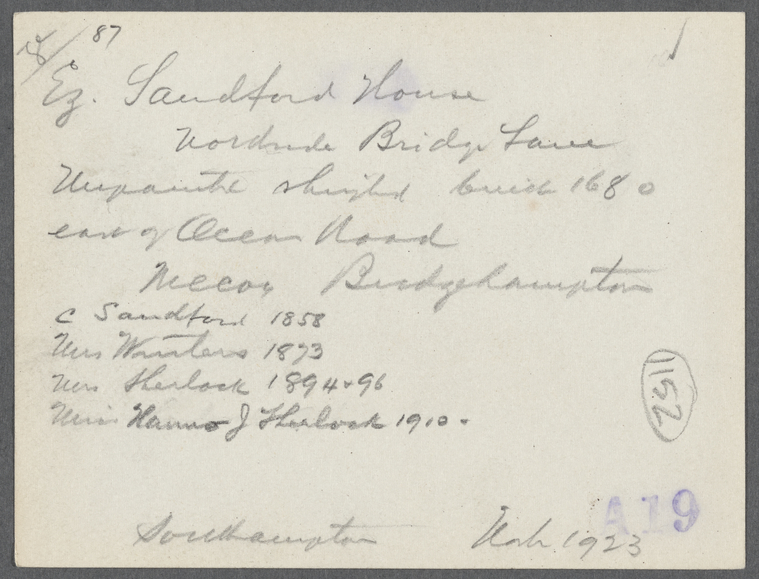 87
Ez. Sandford House
Northside Bridge Lane
Unpainted shingled built 1680
east of Ocean Road
Mecox Bridgehampton
C Sandford 1858
Mrs Winters 1873
Mrs Sherlock 1894 + 96
Sherlock 1910
1152
A19
Southampton 1923